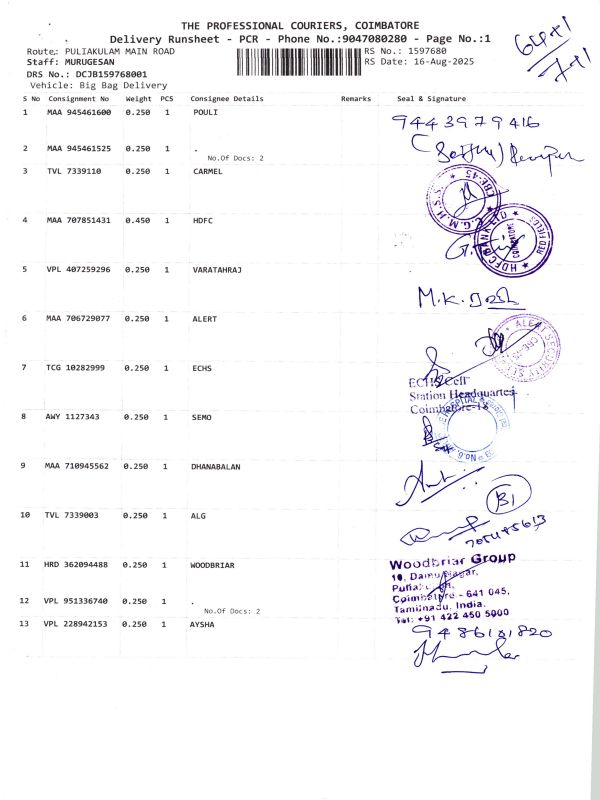 THE PROFESSIONAL COURIERS, COIMBATORE
Delivery Runsheet - PCR - Phone No.:9047080280 - Page No.:1
64+1
7+1
Route: PULIAKULAM MAIN ROAD
RS No.: 1597680
Staff: MURUGESAN
RS Date: 16-Aug-2025
DRS No.: DCJB159768001
Vehicle: Big Bag Delivery
S No Consignment No Weight PCS Consignee Details Remarks Seal & Signature
1 MAA 945461600 0.250 1 POULI
9443979416
2 MAA 945461525 0.250 1 .
No.Of Docs: 2
3 TVL 7339110 0.250 1 CARMEL
C.G.M.H.S.S. CBE-45
4 MAA 707851431 0.450 1 HDFC
HDFC BANK LTD COIMBATORE RED FIELDS
5 VPL 407259296 0.250 1 VARATAHRAJ
M.K.
6 MAA 706729077 0.250 1 ALERT
ALERT SECURITY CBE-45
7 TCG 10282999 0.250 1 ECHS
ECHS Cell
Station Headquarters
Coimbatore-18
8 AWY 1127343 0.250 1 SEMO
9 MAA 710945562 0.250 1 DHANABALAN
B1
10 TVL 7339003 0.250 1 ALG
11 HRD 362094488 0.250 1 WOODBRIAR
Woodbriar Group
10, Damu Nagar,
Puliakulam,
Coimbatore - 641 045,
Tamilnadu, India.
Tel: +91 422 450 5000
12 VPL 951336740 0.250 1 .
No.Of Docs: 2
13 VPL 228942153 0.250 1 AYSHA
9486101820